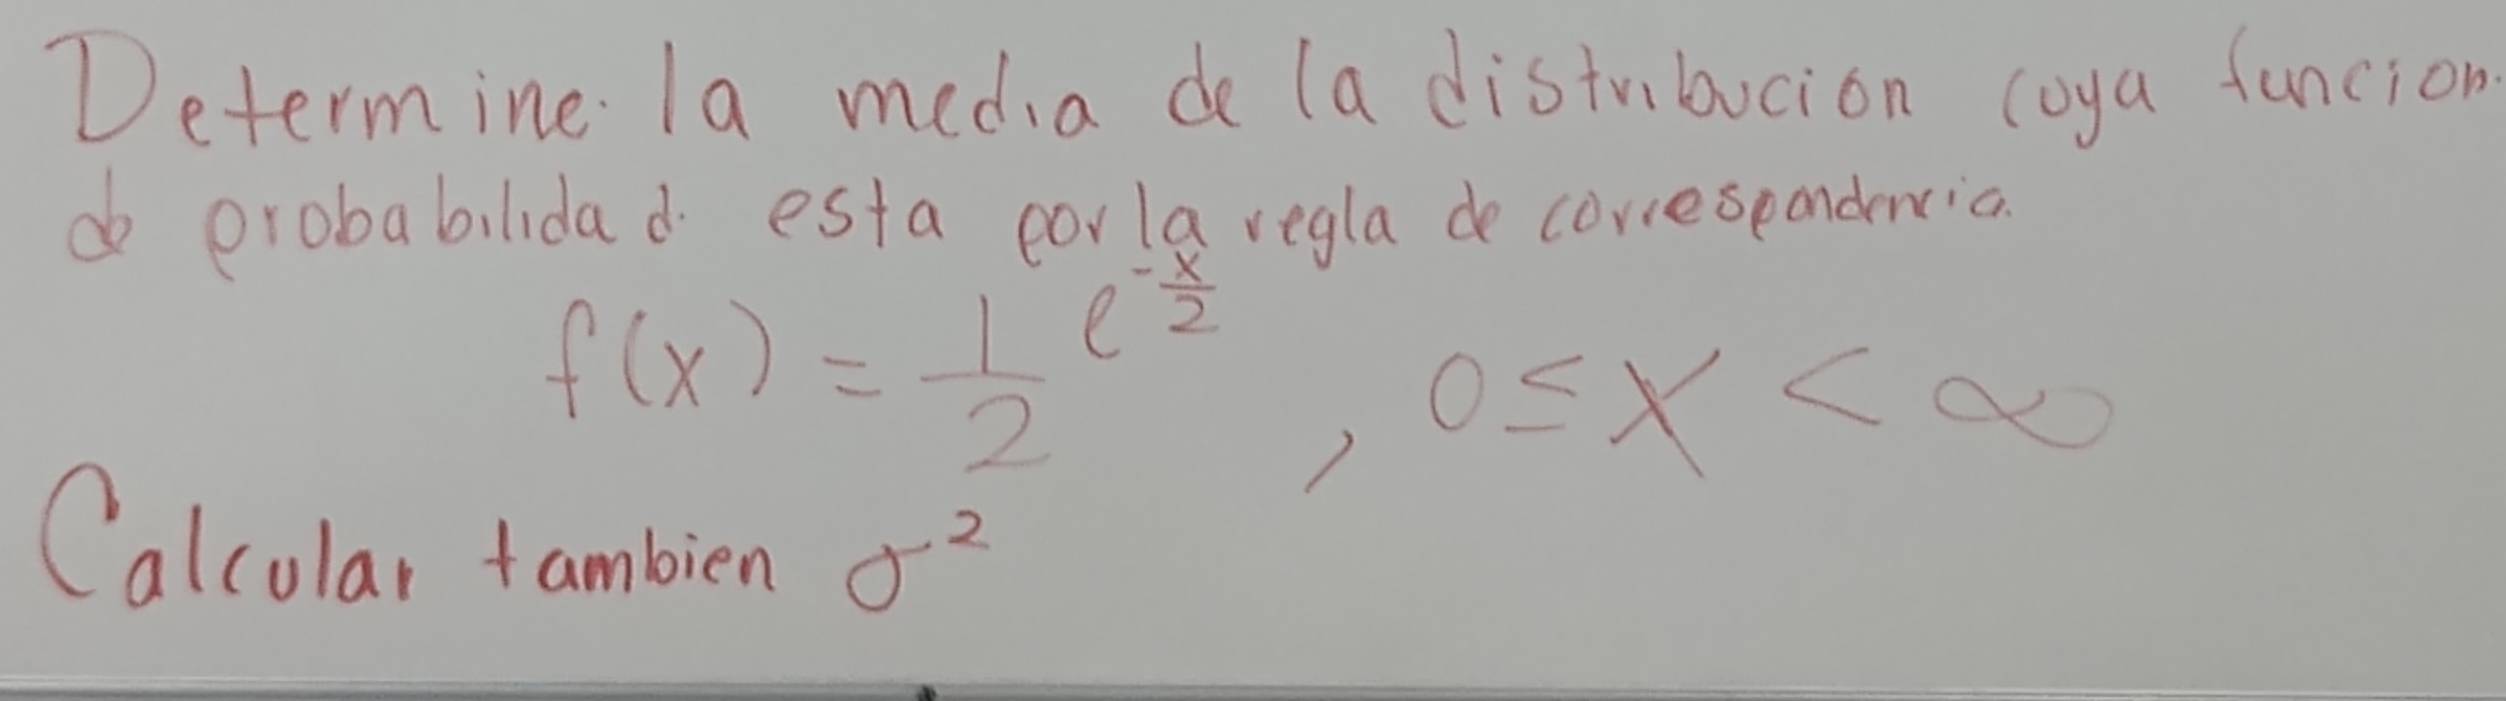 Determine la media de la distribucion cuya funcion
de probabilidad esta por la regla de correspondencia.
f(x) = 1/2 e^(-x/2) , 0 ≤ x < ∞
Calcular tambien σ²